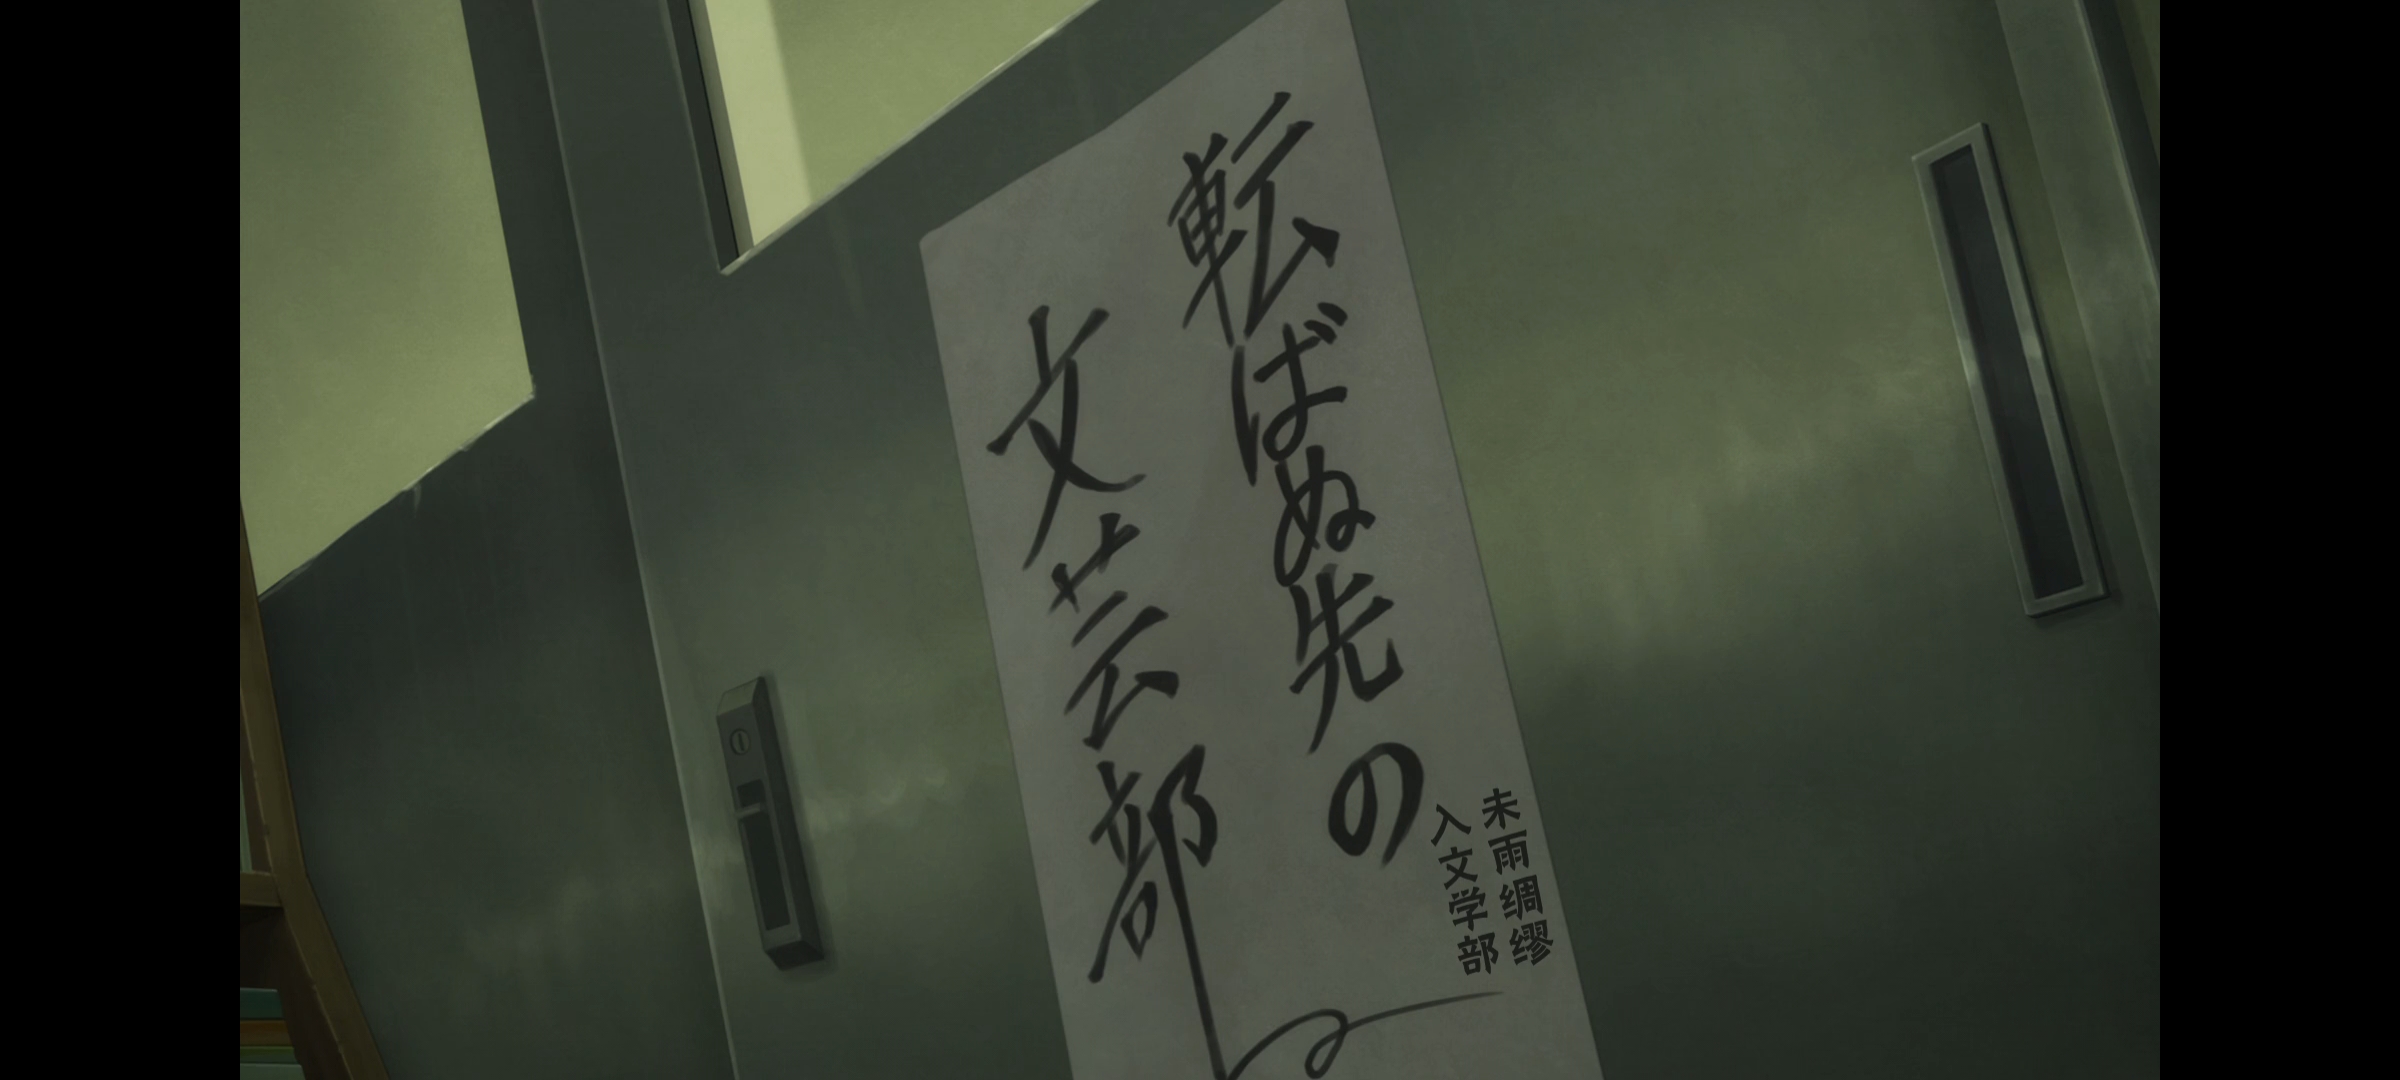 転ばぬ先の
文芸部
未雨绸缪
入文学部